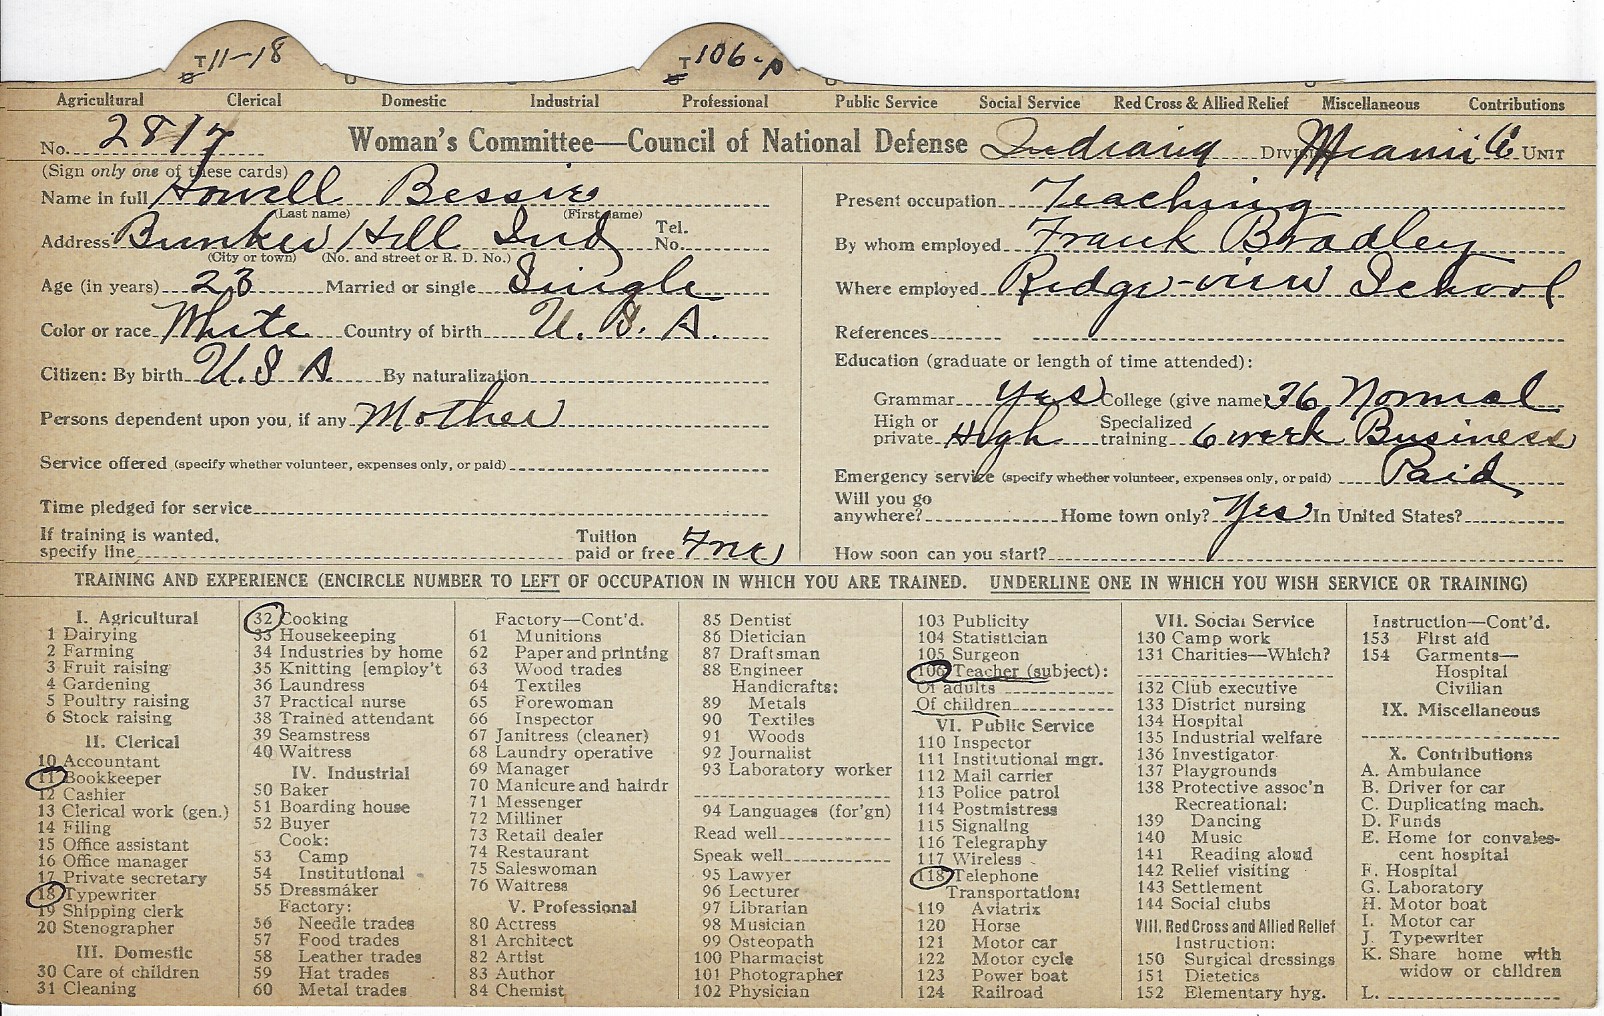 T 11-18 T 106-P
Agricultural Clerical Domestic Industrial Professional Public Service Social Service Red Cross & Allied Relief Miscellaneous Contributions
No. 2817 Woman's Committee—Council of National Defense Indiana Division Miami Co. Unit
(Sign only one of these cards)
Name in full Howell Bessie
(Last name) (First name)
Address Bunker Hill Ind Tel. No.
(City or town) (No. and street or R. D. No.)
Age (in years) 23 Married or single Single
Color or race White Country of birth U. S. A.
Citizen: By birth U. S A. By naturalization
Persons dependent upon you, if any Mother
Service offered (specify whether volunteer, expenses only, or paid)
Time pledged for service
If training is wanted, specify line Tuition paid or free Free
Present occupation Teaching
By whom employed Frank Bradley
Where employed Ridge-view School
References
Education (graduate or length of time attended):
Grammar Yes College (give name) 36 Normal
High or private High Specialized training 6 week Business
Emergency service (specify whether volunteer, expenses only, or paid) Paid
Will you go anywhere? Home town only? Yes In United States?
How soon can you start?
TRAINING AND EXPERIENCE (ENCIRCLE NUMBER TO LEFT OF OCCUPATION IN WHICH YOU ARE TRAINED. UNDERLINE ONE IN WHICH YOU WISH SERVICE OR TRAINING)
I. Agricultural
1 Dairying
2 Farming
3 Fruit raising
4 Gardening
5 Poultry raising
6 Stock raising
II. Clerical
10 Accountant
11 Bookkeeper
12 Cashier
13 Clerical work (gen.)
14 Filing
15 Office assistant
16 Office manager
17 Private secretary
18 Typewriter
19 Shipping clerk
20 Stenographer
III. Domestic
30 Care of children
31 Cleaning
32 Cooking
33 Housekeeping
34 Industries by home
35 Knitting [employ't
36 Laundress
37 Practical nurse
38 Trained attendant
39 Seamstress
40 Waitress
IV. Industrial
50 Baker
51 Boarding house
52 Buyer
Cook:
53 Camp
54 Institutional
55 Dressmaker
Factory:
56 Needle trades
57 Food trades
58 Leather trades
59 Hat trades
60 Metal trades
Factory—Cont'd.
61 Munitions
62 Paper and printing
63 Wood trades
64 Textiles
65 Forewoman
66 Inspector
67 Janitress (cleaner)
68 Laundry operative
69 Manager
70 Manicure and hairdr
71 Messenger
72 Milliner
73 Retail dealer
74 Restaurant
75 Saleswoman
76 Waitress
V. Professional
80 Actress
81 Architect
82 Artist
83 Author
84 Chemist
85 Dentist
86 Dietician
87 Draftsman
88 Engineer
Handicrafts:
89 Metals
90 Textiles
91 Woods
92 Journalist
93 Laboratory worker
94 Languages (for'gn)
Read well
Speak well
95 Lawyer
96 Lecturer
97 Librarian
98 Musician
99 Osteopath
100 Pharmacist
101 Photographer
102 Physician
103 Publicity
104 Statistician
105 Surgeon
106 Teacher (subject):
Of adults
Of children
VI. Public Service
110 Inspector
111 Institutional mgr.
112 Mail carrier
113 Police patrol
114 Postmistress
115 Signaling
116 Telegraphy
117 Wireless
118 Telephone
Transportation:
119 Aviatrix
120 Horse
121 Motor car
122 Motor cycle
123 Power boat
124 Railroad
VII. Social Service
130 Camp work
131 Charities—Which?
132 Club executive
133 District nursing
134 Hospital
135 Industrial welfare
136 Investigator
137 Playgrounds
138 Protective assoc'n
Recreational:
139 Dancing
140 Music
141 Reading aloud
142 Relief visiting
143 Settlement
144 Social clubs
VIII. Red Cross and Allied Relief
Instruction:
150 Surgical dressings
151 Dietetics
152 Elementary hyg.
Instruction—Cont'd.
153 First aid
154 Garments—
Hospital
Civilian
IX. Miscellaneous
X. Contributions
A. Ambulance
B. Driver for car
C. Duplicating mach.
D. Funds
E. Home for convales-
cent hospital
F. Hospital
G. Laboratory
H. Motor boat
I. Motor car
J. Typewriter
K. Share home with
widow or children
L.